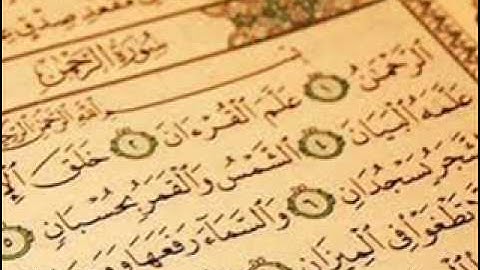 مَقْعَدِ صِدْقٍ
سُورَةُ الرَّحْمَٰن
بِسْمِ اللَّهِ الرَّحْمَٰنِ
الرَّحْمَٰنُ ١ عَلَّمَ الْقُرْءَانَ ٢ خَلَقَ
عَلَّمَهُ الْبَيَانَ ٤ الشَّمْسُ وَالْقَمَرُ بِحُسْبَانٍ ٥
شَّجَرُ يَسْجُدَانِ ٦ وَالسَّمَاءَ رَفَعَهَا وَوَ
تَطْغَوْا فِي الْمِيزَانِ